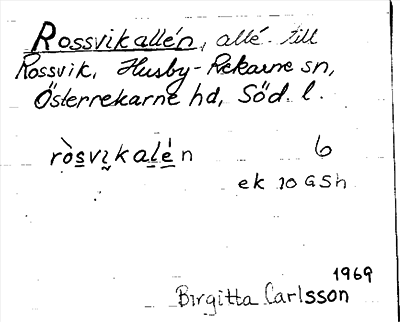 Rossvikallén, allé till
Rossvik, Husby-Rekarne sn,
Österrekarne hd, Söd. l.
ròsvikalén 6
ek 10 G5h
1969
Birgitta Carlsson